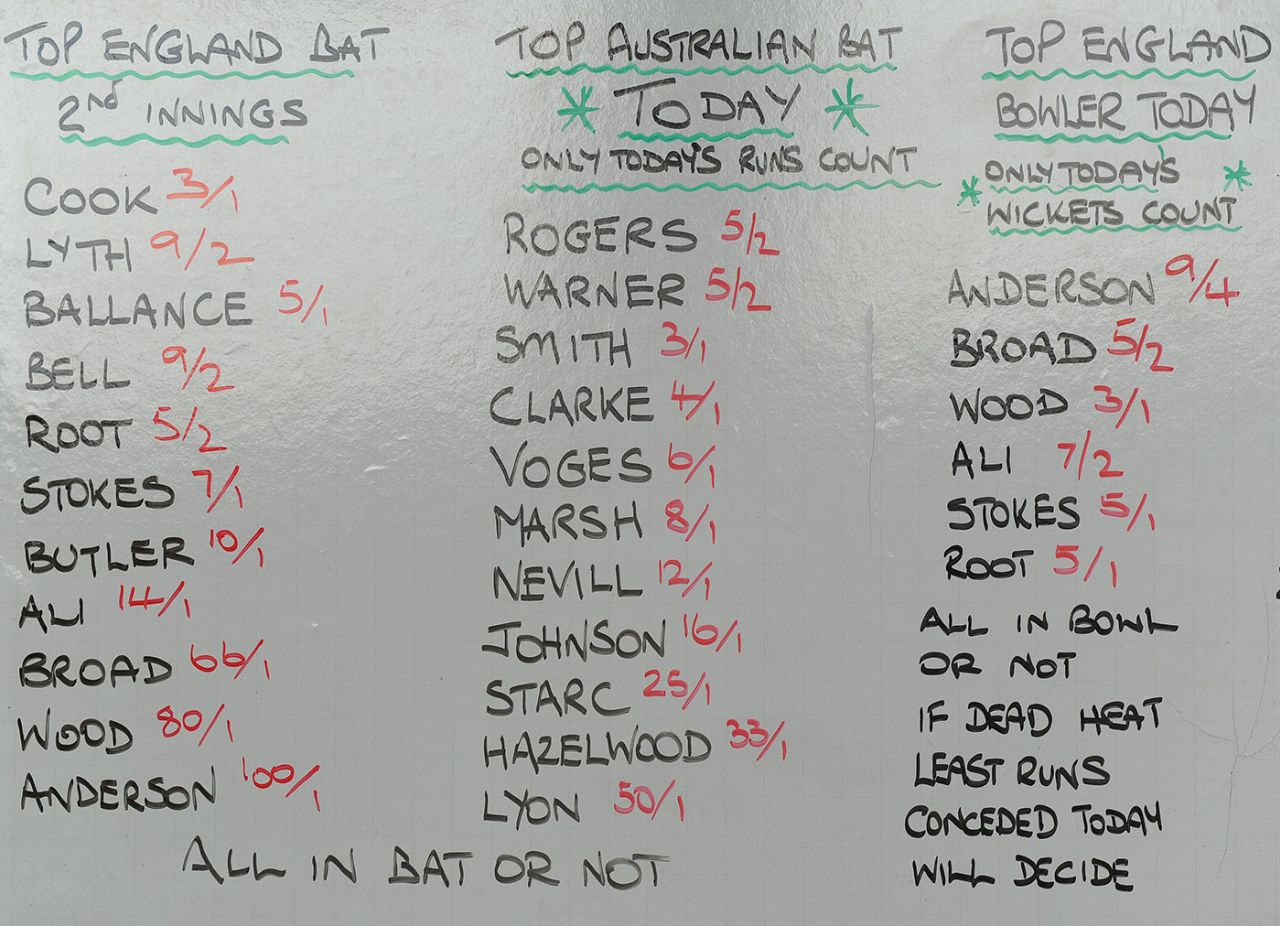 TOP ENGLAND BAT
2nd INNINGS
COOK 3/1
LYTH 9/2
BALLANCE 5/1
BELL 9/2
ROOT 5/2
STOKES 7/1
BUTLER 10/1
ALI 14/1
BROAD 66/1
WOOD 80/1
ANDERSON 100/1
TOP AUSTRALIAN BAT
* TODAY *
ONLY TODAY'S RUNS COUNT
ROGERS 5/2
WARNER 5/2
SMITH 3/1
CLARKE 4/1
VOGES 6/1
MARSH 8/1
NEVILL 12/1
JOHNSON 16/1
STARC 25/1
HAZELWOOD 33/1
LYON 50/1
ALL IN BAT OR NOT
TOP ENGLAND
BOWLER TODAY
* ONLY TODAY'S *
WICKETS COUNT
ANDERSON 9/4
BROAD 5/2
WOOD 3/1
ALI 7/2
STOKES 5/1
ROOT 5/1
ALL IN BOWL
OR NOT
IF DEAD HEAT
LEAST RUNS
CONCEDED TODAY
WILL DECIDE